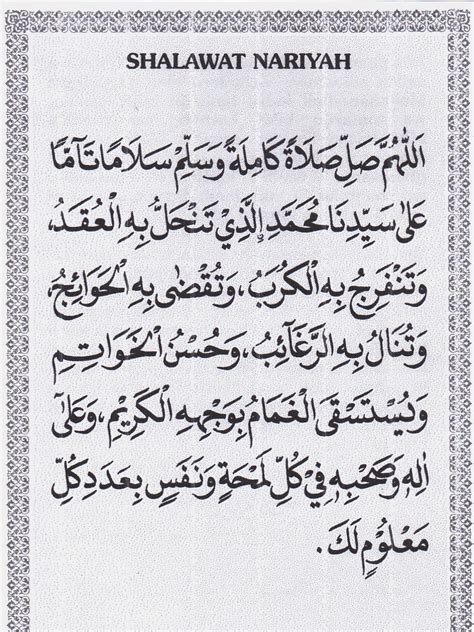 SHALAWAT NARIYAH
اَللّٰهُمَّ صَلِّ صَلَاةً كَامِلَةً وَسَلِّمْ سَلَامًا تَآمًّا
عَلٰى سَيِّدِنَا مُحَمَّدٍ الَّذِيْ تَنْحَلُّ بِهِ الْعُقَدُ،
وَتَنْفَرِجُ بِهِ الْكُرَبُ، وَتُقْضٰى بِهِ الْحَوَائِجُ،
وَتُنَالُ بِهِ الرَّغَآئِبُ، وَحُسْنُ الْخَوَاتِمِ
وَيُسْتَسْقَى الْغَمَامُ بِوَجْهِهِ الْكَرِيْمِ، وَعَلٰى
اٰلِهِ وَصَحْبِهِ فِيْ كُلِّ لَمْحَةٍ وَنَفَسٍ بِعَدَدِ كُلِّ
مَعْلُوْمٍ لَكَ.